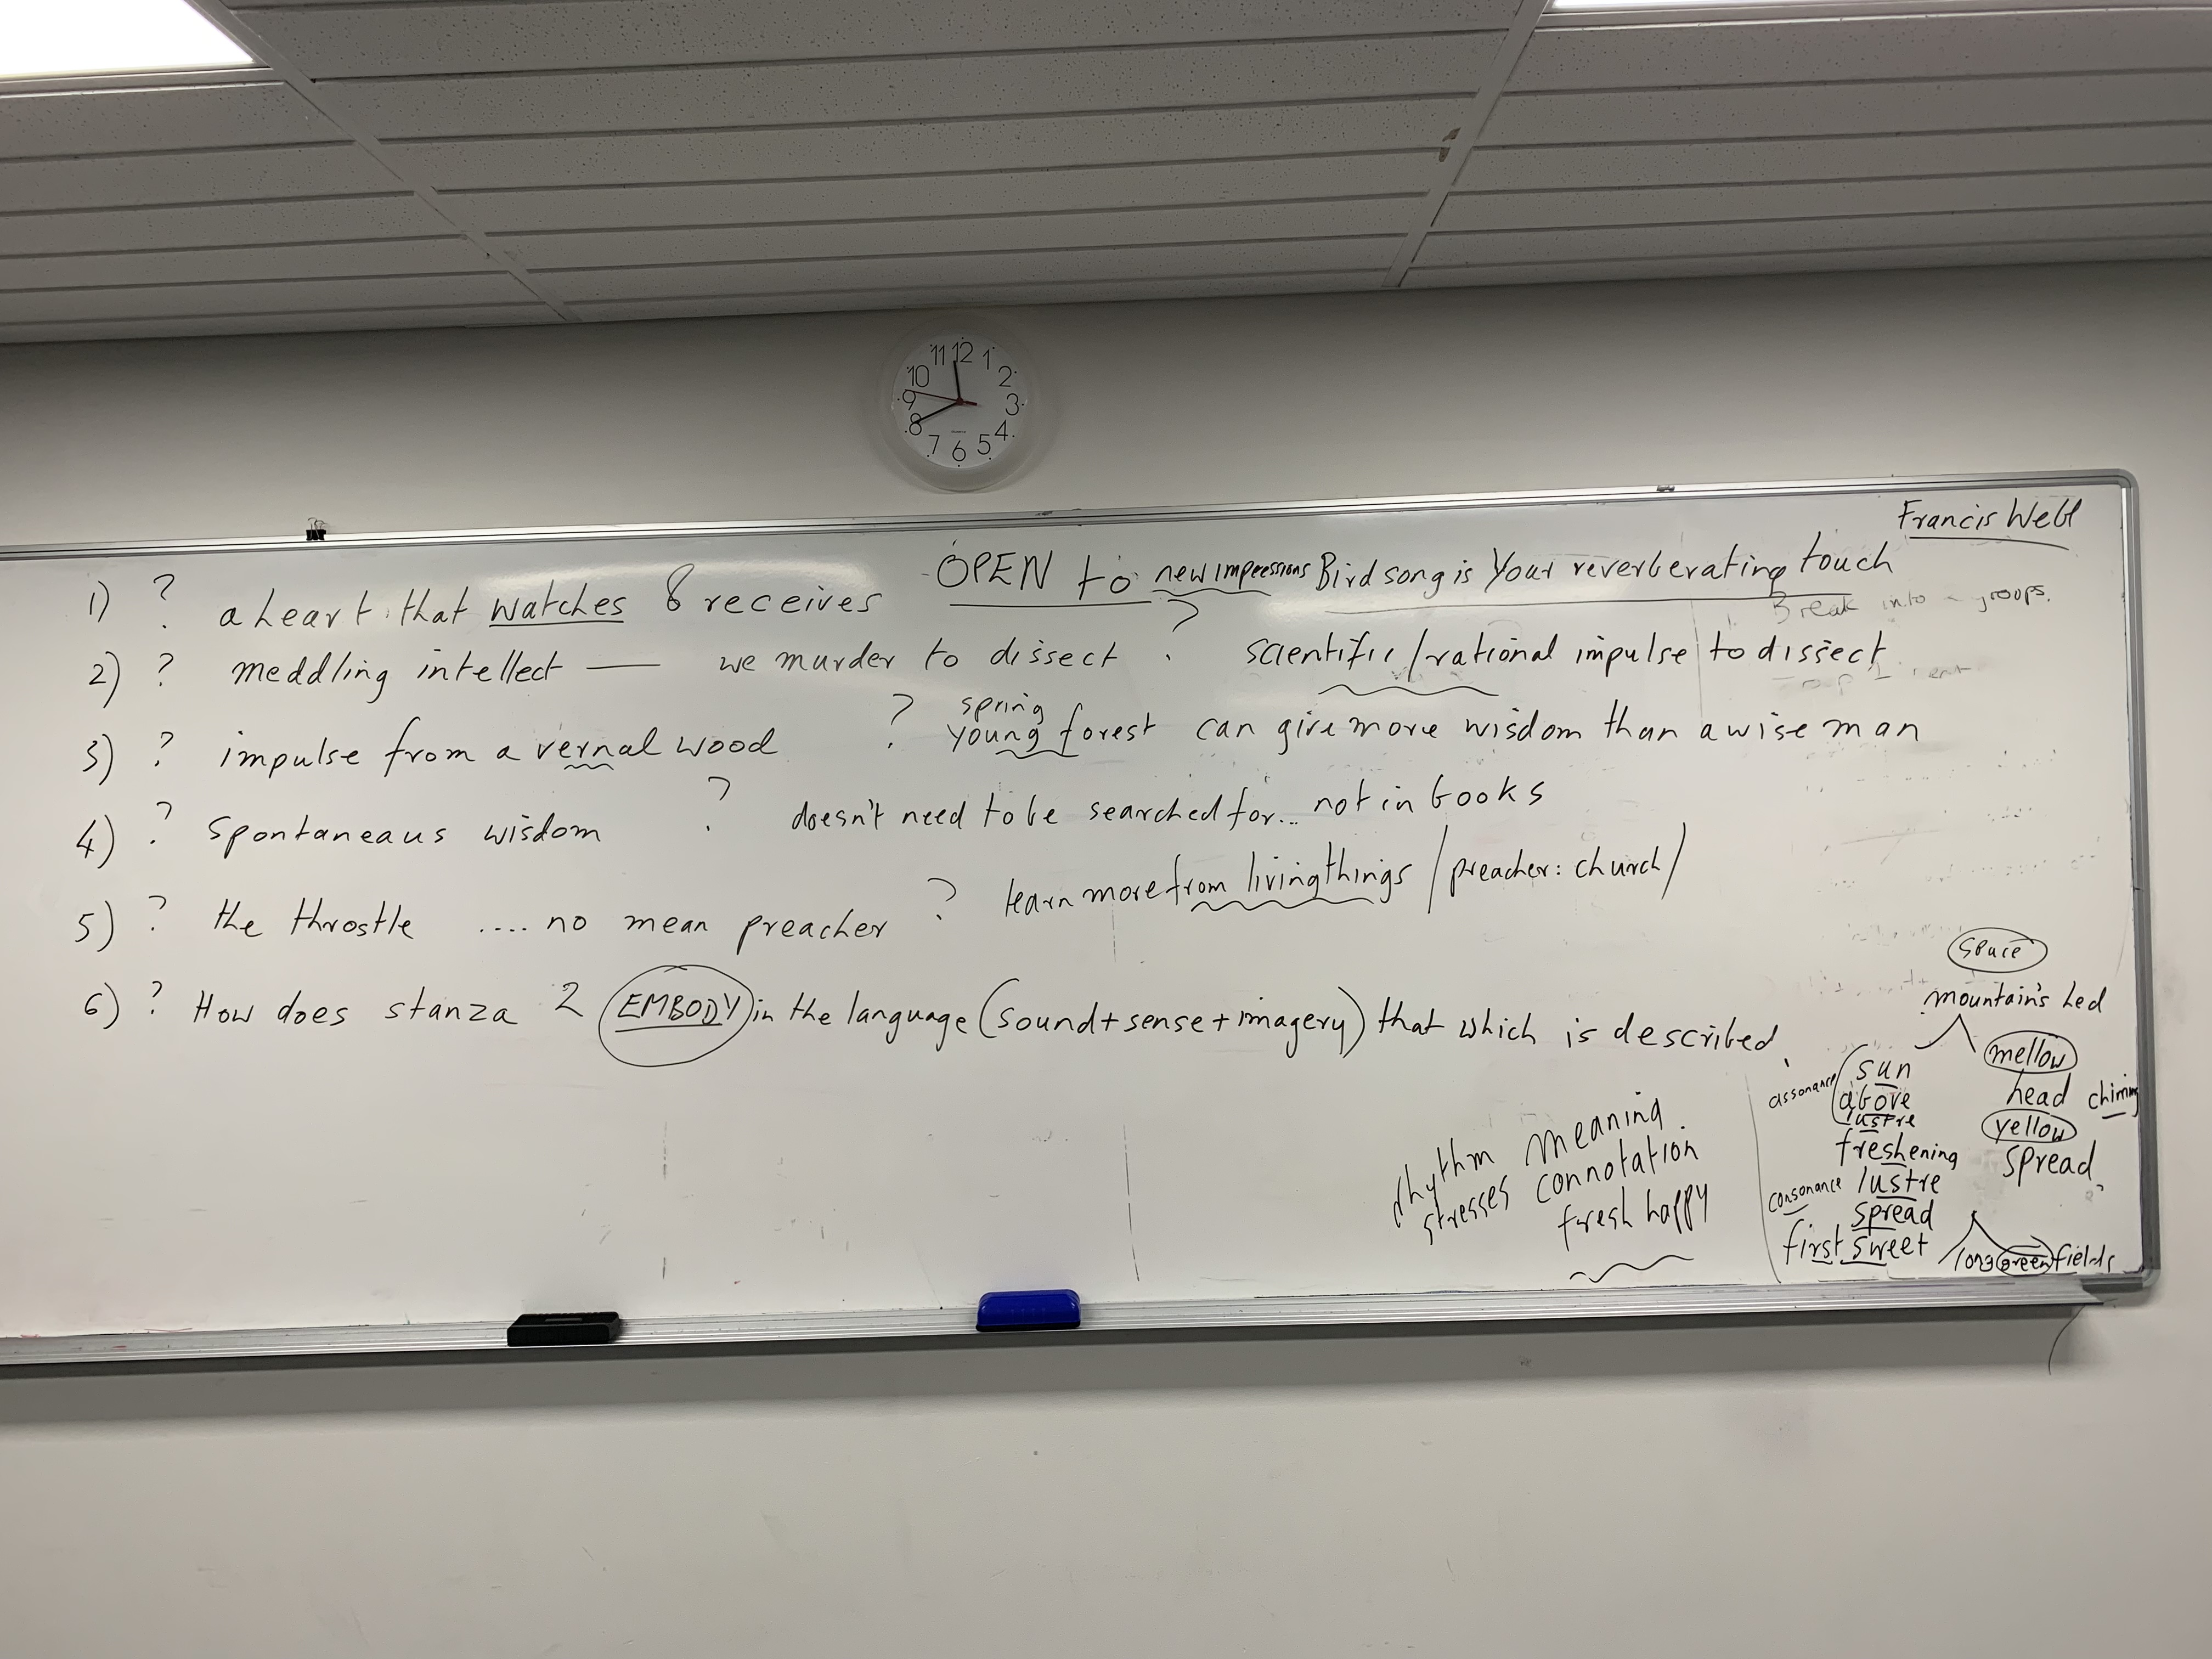 11 12 1
10 2
9 3
8 4
7 6 5
Francis Webb
1) ? a heart that watches & receives OPEN to new impressions Bird song is Your reverberating touch
Break into groups.
2) ? meddling intellect — we murder to dissect ? scientific/rational impulse to dissect
spring
3) ? impulse from a vernal wood ? young forest can give more wisdom than a wise man
4) ? spontaneaus wisdom ? doesn't need to be searched for... not in books
5) ? the throstle .... no mean preacher ? learn more from living things / preacher: church/
6) ? How does stanza 2 EMBODY in the language (sound+sense+imagery) that which is described.
space
mountain's hed
mellow
head chiming
yellow
spread
assonance
sun
above
lustre
freshening
consonance lustre
spread
first sweet
long green fields
rhythm meaning
stresses connotation
fresh happy